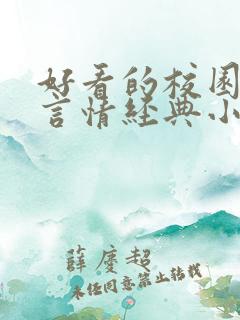 好看的校园
言情经典小
薛庆超
未经同意禁止转载